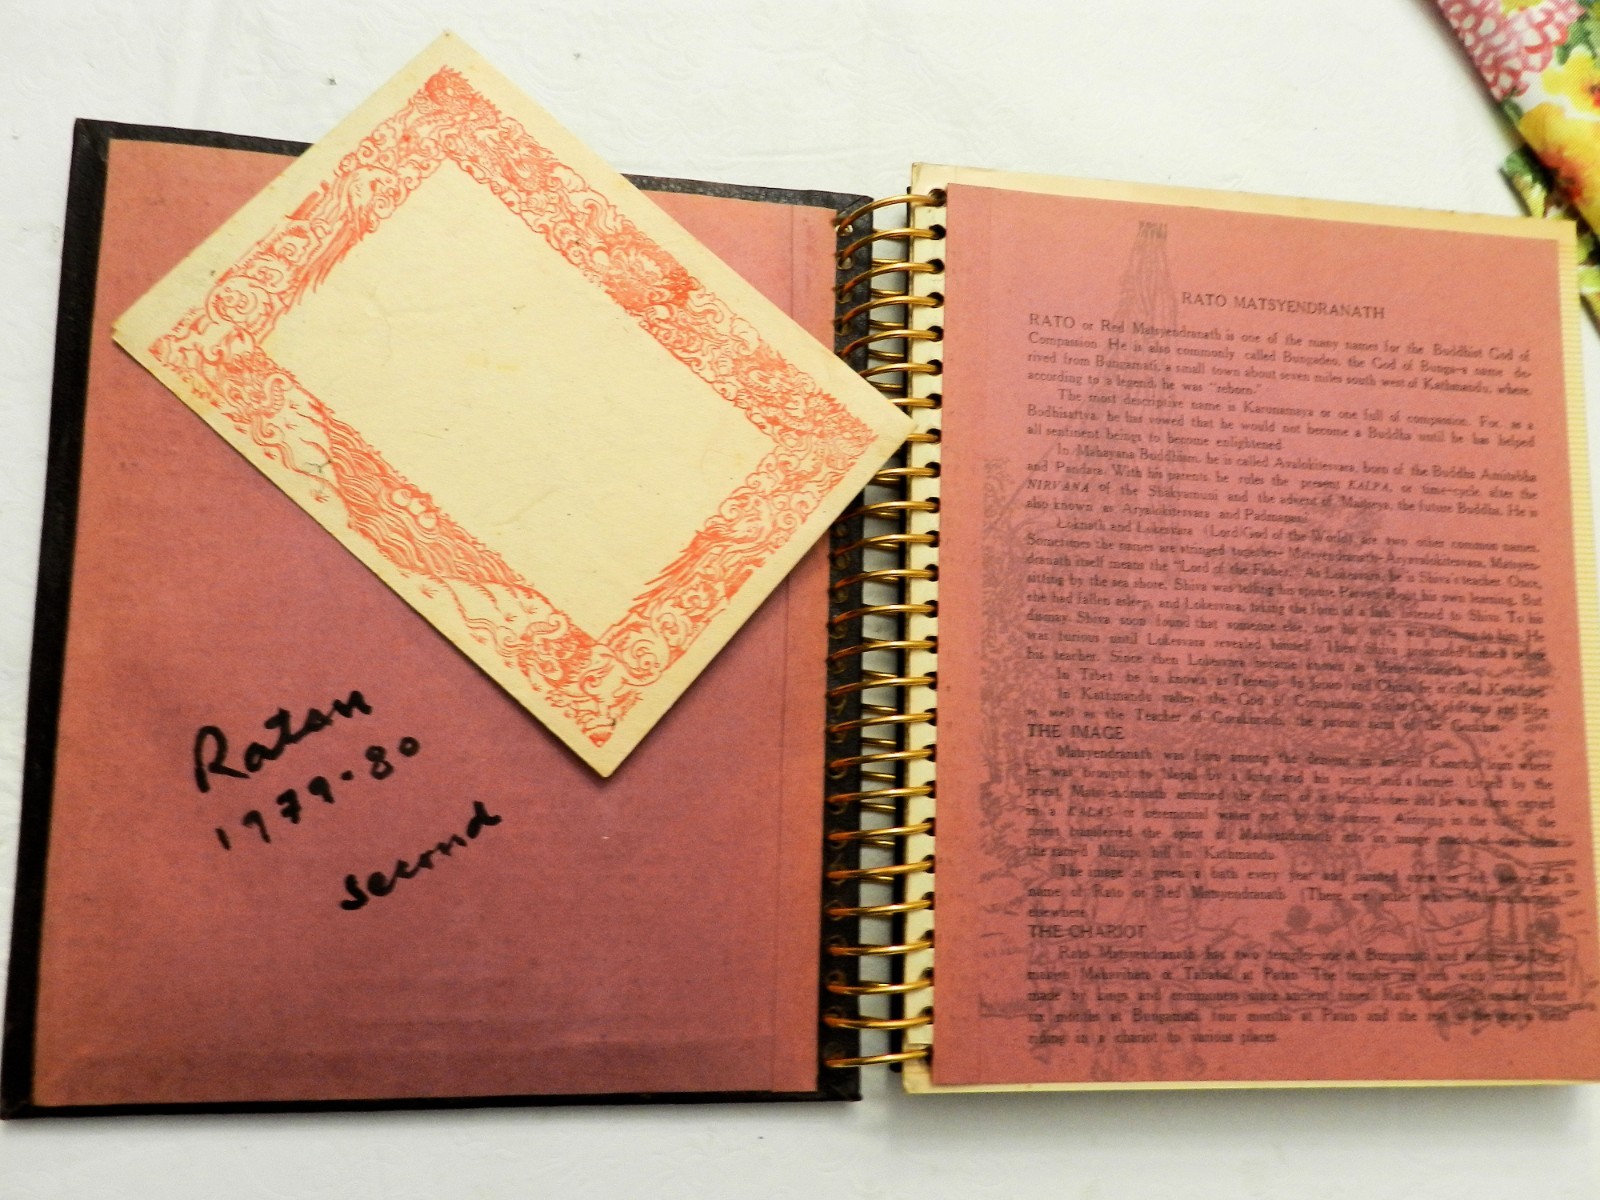 Ratan
1979-80
second
RATO MATSYENDRANATH
RATO or Red Matsyendranath is one of the many names for the Buddhist God of
Compassion. He is also commonly called Bungadeo, the God of Bunga-a name de-
rived from Bungamati, a small town about seven miles south west of Kathmandu, where,
according to a legend, he was "reborn."
The most descriptive name is Karunamaya or one full of compassion. For, as a
Bodhisattva, he has vowed that he would not become a Buddha until he has helped
all sentinent beings to become enlightened.
In Mahayana Buddhism, he is called Avalokitesvara, born of the Buddha Amitabha
and Pandara. With his parents, he rules the present KALPA, or time-cycle after the
NIRVANA of the Shakyamuni and the advent of Maitreya, the future Buddha. He is
also known as Aryalokitesvara and Padmapani.
Loknath and Lokesvara (Lord/God of the World) are two other common names.
Sometimes the names are stringed together- Matsyendranath-Aryavalokitesvara. Matsyen-
dranath itself means the "Lord of the Fishes." As Lokesvara, he is Shiva's teacher. Once,
sitting by the sea shore, Shiva was telling his spouse Parvati about his own learning. But
she had fallen asleep, and Lokesvara, taking the form of a fish, listened to Shiva. To his
dismay, Shiva soon found that someone else, not his wife, was listening to him. He
was furious until Lokesvara revealed himself. Then Shiva prostrated himself before
his teacher. Since then Lokesvara became known as Matsyendranath.
In Tibet, he is known as In Japan and China, he is called
In Kathmandu valley, the God of Compassion is the God of Rain and
as well as the Teacher of Gorakhnath, the patron saint of the
THE IMAGE
Matsyendranath was born among the demons in ancient from where
he was brought to Nepal by a king and his priest and a farmer. Urged by the
priest, Matsyendranath assumed the form of a bumble-bee and he was then carried
in a KALAS or ceremonial water pot by the farmer. Arriving in the valley, the
priest transferred the spirit of Matsyendranath into an image made of
the hill in Kathmandu.
The image is given a bath every year and painted
name of Rato or Red Matsyendranath. (There are other
elsewhere
THE CHARIOT
Rato Matsyendranath has two temples-one at Bungamati and another at
at Patan. The temples are rich with
made by kings and commoners since ancient times. Rato
six months at Bungamati, four months at Patan and the rest of the
riding in a chariot to various places.